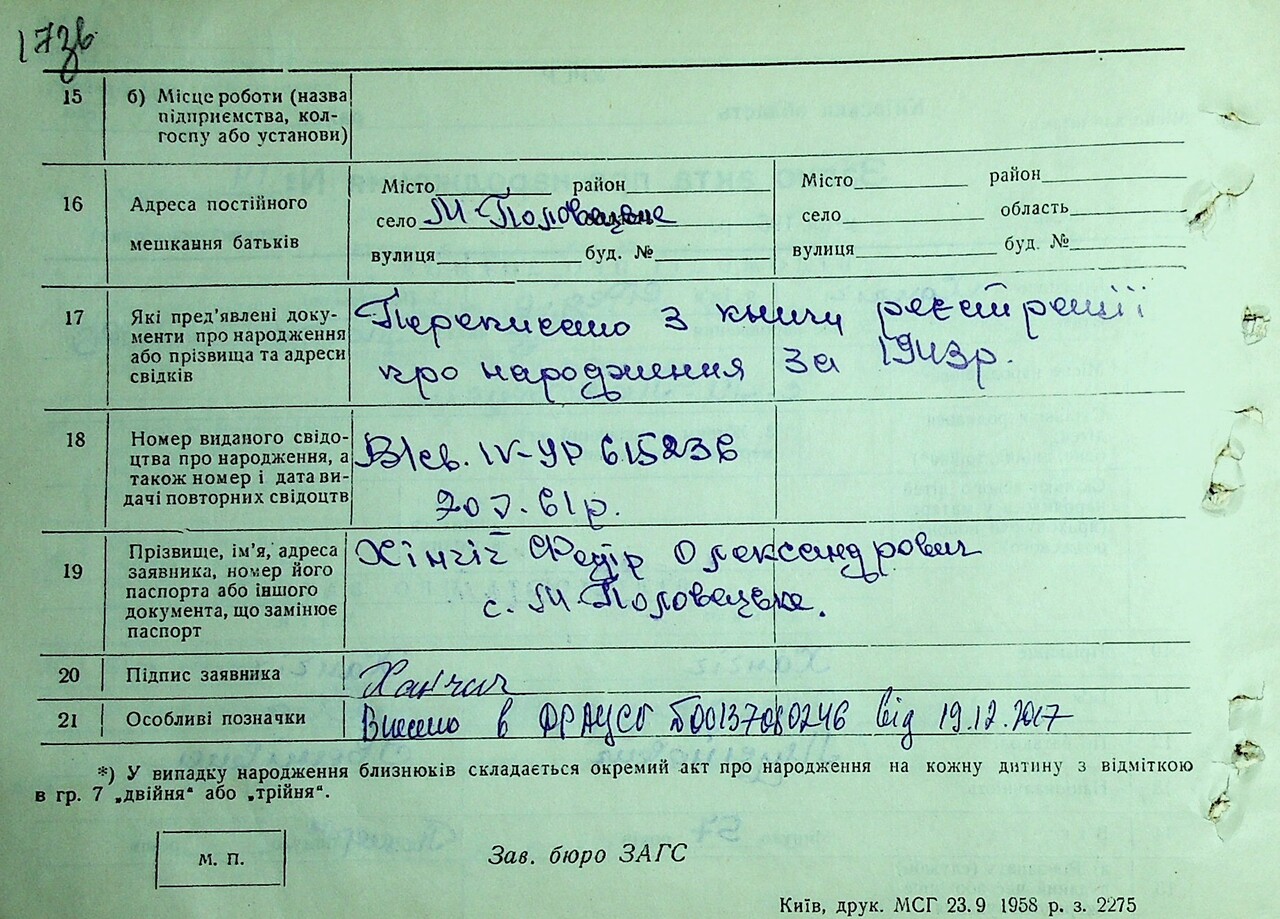 173б
15 б) Місце роботи (назва
підприємства, кол-
госпу або установи)
16 Адреса постійного
мешкання батьків
Місто район
село М-Половецьке
вулиця буд. №
Місто район
село область
вулиця буд. №
17 Які пред’явлені доку-
менти про народження
або прізвища та адреси
свідків
Переписано з книги реєстрації
про народження за 1943р.
18 Номер виданого свідо-
цтва про народження, а
також номер і дата ви-
дачі повторних свідоцтв
В/св. IV-УР 615236
61р.
19 Прізвище, ім’я, адреса
заявника, номер його
паспорта або іншого
документа, що замінює
паспорт
Федір Олександрович
с. М-Половецьке.
20 Підпис заявника
21 Особливі позначки
Внесено в ДРАЦСГ 00137080246 від 19.12.2017
*) У випадку народження близнюків складається окремий акт про народження на кожну дитину з відміткою
в гр. 7 „двійня“ або „трійня“.
М. П.
Зав. бюро ЗАГС
Київ, друк. МСГ 23.9 1958 р. з. 2275